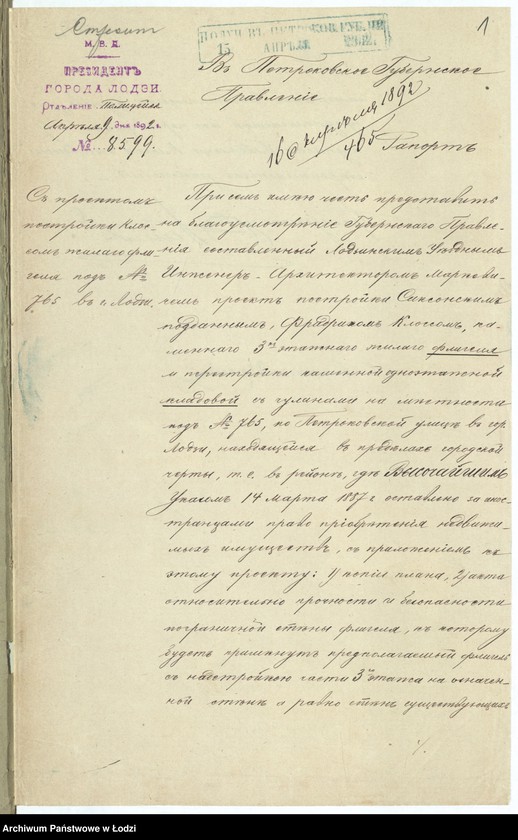 Строит
М. В. Д.
ПРЕЗИДЕНТЪ
ГОРОДА ЛОДЗИ.
Отдѣленіе Полицейск.
Апрѣля 9 дня 1892 г.
№ 8599.
ПОЛУЧ. ВЪ ПЕТРОКОВ. ГУБ. ПР.
15 АПРѢЛЯ 1892
1
Въ Петроковское Губернское
Правленіе
16 апрѣля 1892
465
Рапортъ
Съ проектомъ
постройки Клос-
сомъ жилаго фли-
геля подъ №
765 въ г. Лодзи.
При семъ имѣю честь представить
на благоусмотрѣніе Губернскаго Правле-
нія составленный Лодзинскимъ Уѣзднымъ
Инженеръ-Архитекторомъ Маркеви-
чемъ проектъ постройки Саксонскимъ
подданнымъ, Фридрихомъ Клоссомъ, ка-
меннаго 3хъ этажнаго жилаго флигеля
и перестройки каменной одноэтажной
кладовой съ сушнями на мѣстности
подъ № 765, по Петроковской улицѣ въ гор.
Лодзи, находящейся въ предѣлахъ городской
черты, т. е. въ районѣ, гдѣ ВЫСОЧАЙШИМЪ
Указомъ 14 Марта 1887 г. оставлено за ино-
странцами право пріобрѣтенія недвижи-
мыхъ имуществъ, съ приложеніемъ къ
этому проекту: 1) копіи плана, 2) акта
относительно прочности и безопасности
пограничной стѣны флигеля, къ которому
будетъ примкнутъ предполагаемый флигель
съ надстройкою части 3го этажа на означен-
ной стѣнѣ а равно стѣнъ существующихъ
./.
Archiwum Państwowe w Łodzi